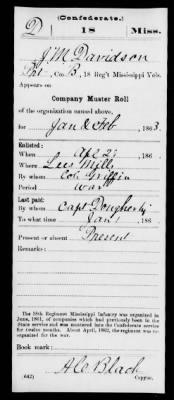 (Confederate.)
D 18 Miss.
J M Davidson
Pvt, Co. B, 18 Reg't Mississippi Vols.
Appears on
Company Muster Roll
of the organization named above,
for Jan & Feb, 1863.
Enlisted:
When Apl 21, 186
Where Lees Mills
By whom Col. Griffin
Period war
Last paid:
By whom Capt Dougherty
To what time Jan 1, 186
Present or absent Present
Remarks:
The 18th Regiment Mississippi Infantry was organized in
June, 1861, of companies which had previously been in the
State service and was mustered into the Confederate service
for twelve months. About April, 1862, the regiment was re-
organized for the war.
Book mark:
A C Black
(642) Copyist.